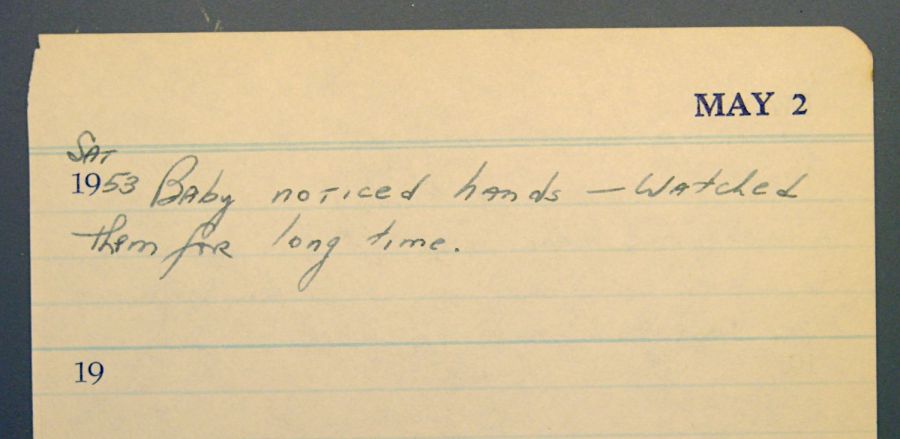 MAY 2
SAT
1953 Baby noticed hands — Watched
them for long time.
19